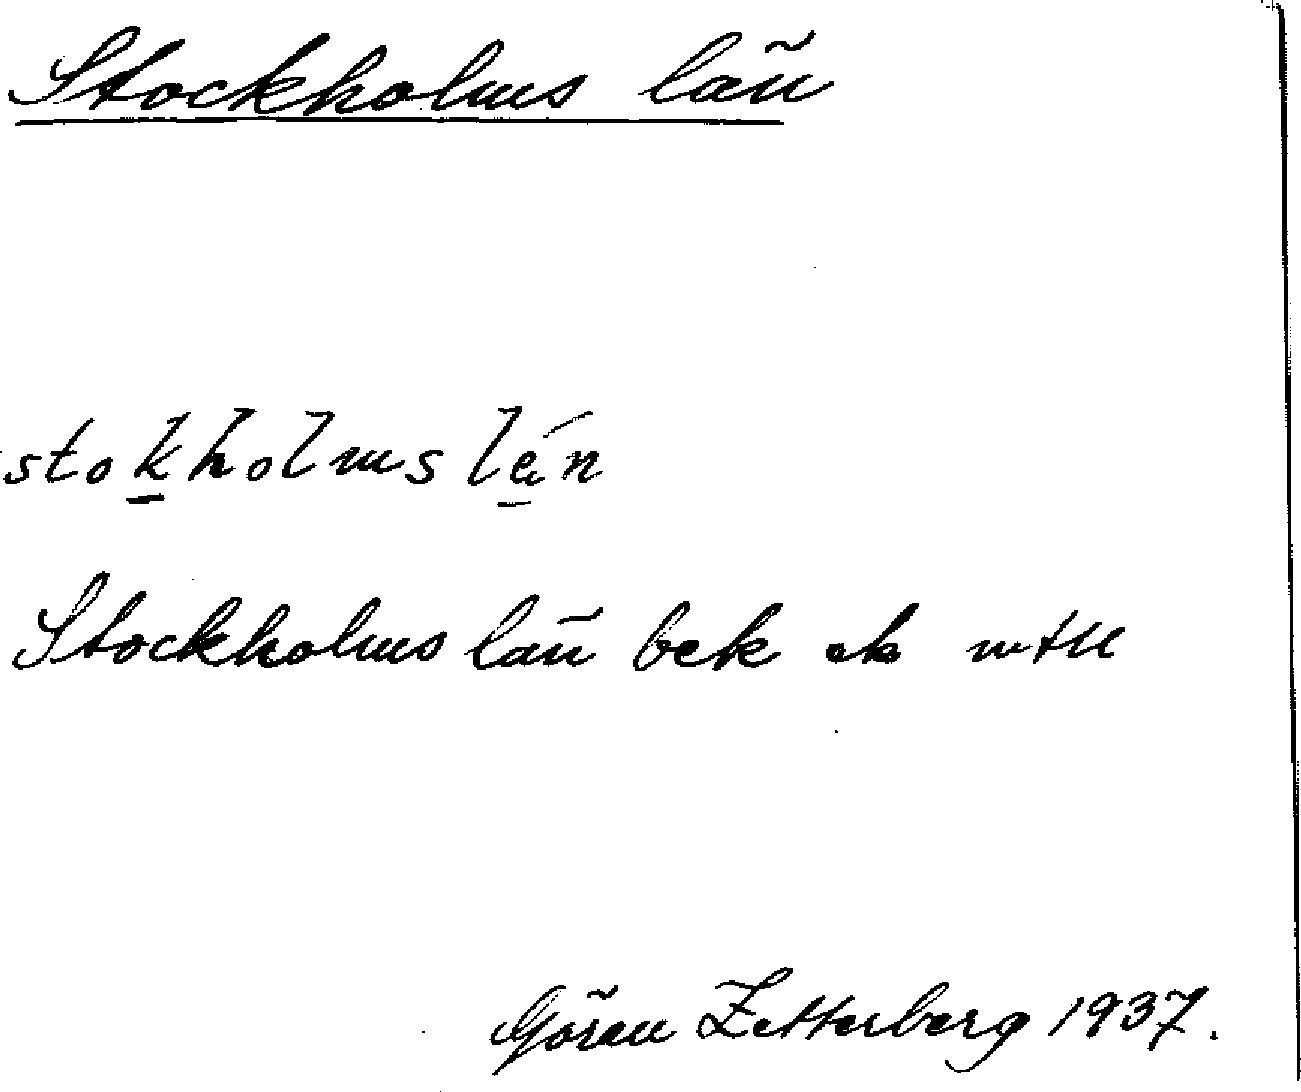 Stockholms län
stokholms lén
Stockholms län bek ek mtll
Göran Zetterberg 1937.